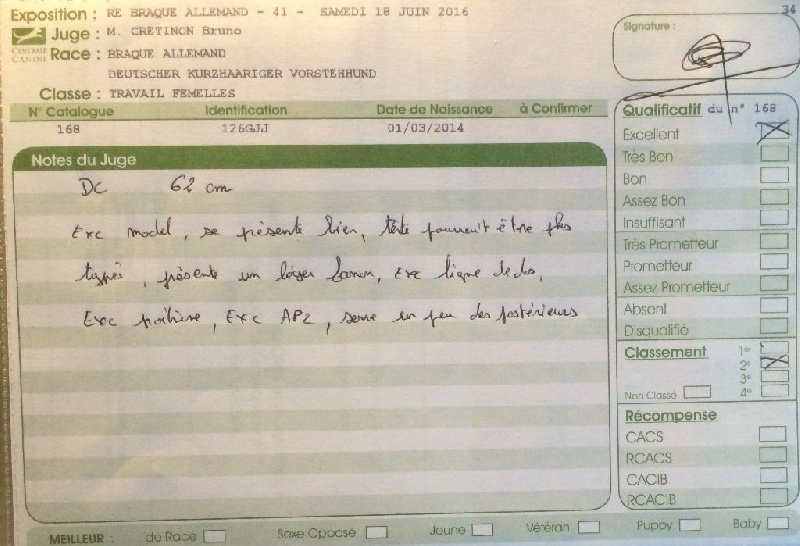 34
Exposition : RE BRAQUE ALLEMAND - 41 - SAMEDI 18 JUIN 2016
Juge : M. CRETINON Bruno
CENTRALE CANINE
Race : BRAQUE ALLEMAND
DEUTSCHER KURZHAARIGER VORSTEHHUND
Classe : TRAVAIL FEMELLES
N° Catalogue Identification Date de Naissance à Confirmer
168 126GJJ 01/03/2014
Notes du Juge
DC 62 cm
Exc model, se présente bien, tête pourrait être plus
typée, présente un léger fanon, exc ligne de dos,
Exc poitrine, Exc AP2, serre un peu des postérieurs
Signature :
Qualificatif du n° 168
Excellent
Très Bon
Bon
Assez Bon
Insuffisant
Très Prometteur
Prometteur
Assez Prometteur
Absent
Disqualifié
Classement 1e
2e
3e
Non Classé 4e
Récompense
CACS
RCACS
CACIB
RCACIB
MEILLEUR : de Race Sexe Opposé Jeune Vétéran Puppy Baby